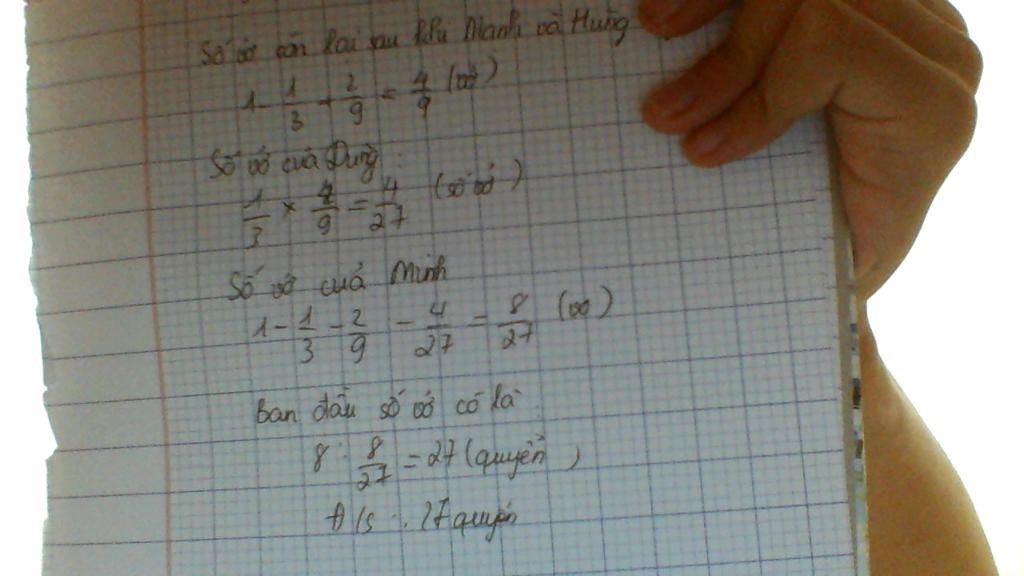 Số vở còn lại sau khi Mạnh và Hùng
1 - 1/3 - 2/9 = 4/9 (vở)
Số vở của Dũng :
1/3 × 4/9 = 4/27 (số vở)
Số vở của Minh
1 - 1/3 - 2/9 - 4/27 = 8/27 (vở)
Ban đầu số vở có là :
8 : 8/27 = 27 (quyển)
Đ/s : 27 quyển